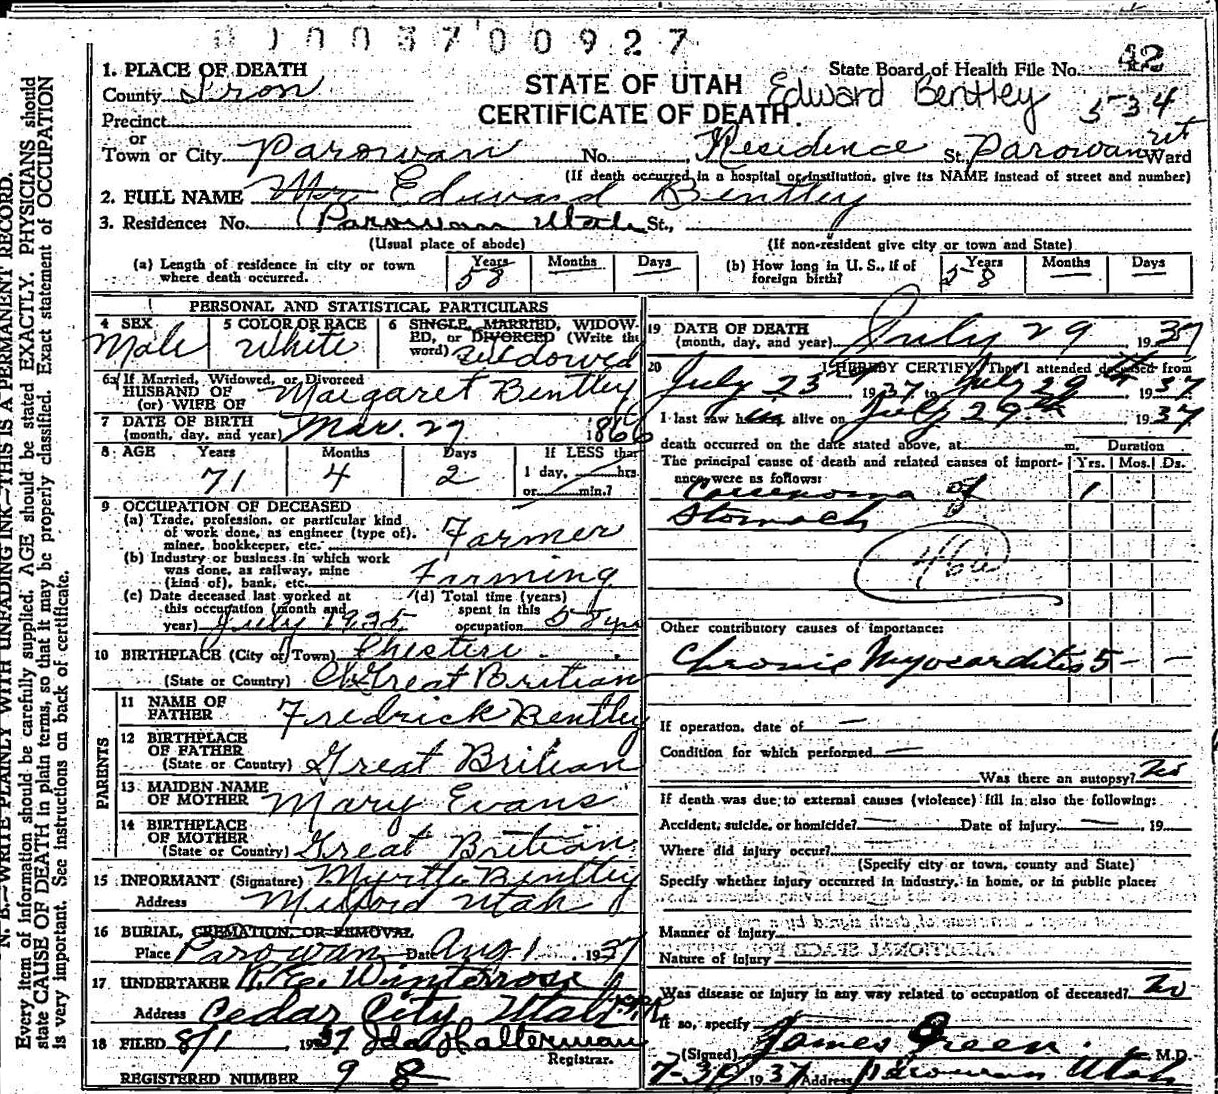 0 0 3 7 0 0 9 2 7
1. PLACE OF DEATH
County Iron
Precinct
or
Town or City Parowan No. Residence St. Parowan Ward
STATE OF UTAH
CERTIFICATE OF DEATH.
State Board of Health File No. 42
Edward Bentley 534
(If death occurred in a hospital or institution, give its NAME instead of street and number)
2. FULL NAME Mr Edward Bentley
3. Residence: No. Parowan Utah St.,
(Usual place of abode) (If non-resident give city or town and State)
(a) Length of residence in city or town where death occurred. Years 58 Months — Days —
(b) How long in U. S., if of foreign birth? Years 58 Months — Days —
PERSONAL AND STATISTICAL PARTICULARS
4 SEX Male
5 COLOR OR RACE White
6 SINGLE, MARRIED, WIDOWED, or DIVORCED (Write the word) Widowed
6a If Married, Widowed, or Divorced
HUSBAND OF Margaret Bentley
(or) WIFE OF
7 DATE OF BIRTH
(month, day, and year) Mar. 27 1866
8 AGE Years 71 Months 4 Days 2
If LESS than
1 day, hrs.
or min.?
9 OCCUPATION OF DECEASED
(a) Trade, profession, or particular kind
of work done, as engineer (type of),
miner, bookkeeper, etc. Farmer
(b) Industry or business in which work
was done, as railway, mine
(kind of), bank, etc. Farming
(c) Date deceased last worked at
this occupation (month and
year) July 1935
(d) Total time (years)
spent in this
occupation 58 yrs
10 BIRTHPLACE (City or Town)
(State or Country) Great Britian
PARENTS
11 NAME OF
FATHER Fredrick Bentley
12 BIRTHPLACE
OF FATHER
(State or Country) Great Britian
13 MAIDEN NAME
OF MOTHER Mary Evans
14 BIRTHPLACE
OF MOTHER
(State or Country) Great Britian
15 INFORMANT (Signature) Myrtle Bentley
Address Milford Utah
16 BURIAL, CREMATION, OR REMOVAL
Place Parowan Date Aug 1 1937
17 UNDERTAKER Winterrose
Address Cedar City, Utah
18 FILED 8/1 1937 Ida Halterman
Registrar.
REGISTERED NUMBER 9 8
19 DATE OF DEATH
(month, day, and year) July 29, 1937
20 I HEREBY CERTIFY, That I attended deceased from
July 23 1937 to July 29th 1937
I last saw him alive on July 29th 1937
death occurred on the date stated above, at m.
Duration
The principal cause of death and related causes of importance were as follows: Yrs. Mos. Ds.
Carcenoma of 1
Stomach
46a
Other contributory causes of importance:
Chronic Myocarditis 5 - -
If operation, date of —
Condition for which performed —
Was there an autopsy? No
If death was due to external causes (violence) fill in also the following:
Accident, suicide, or homicide? — Date of injury — , 19
Where did injury occur? —
(Specify city or town, county and State)
Specify whether injury occurred in industry, in home, or in public place:
Manner of injury
Nature of injury
Was disease or injury in any way related to occupation of deceased? No
If so, specify
(Signed) James Green M.D.
7-30 1937 Address Parowan Utah
N. B.—WRITE PLAINLY WITH UNFADING INK—THIS IS A PERMANENT RECORD.
Every item of information should be carefully supplied. AGE should be stated EXACTLY. PHYSICIANS should
state CAUSE OF DEATH in plain terms, so that it may be properly classified. Exact statement of OCCUPATION
is very important. See instructions on back of certificate.